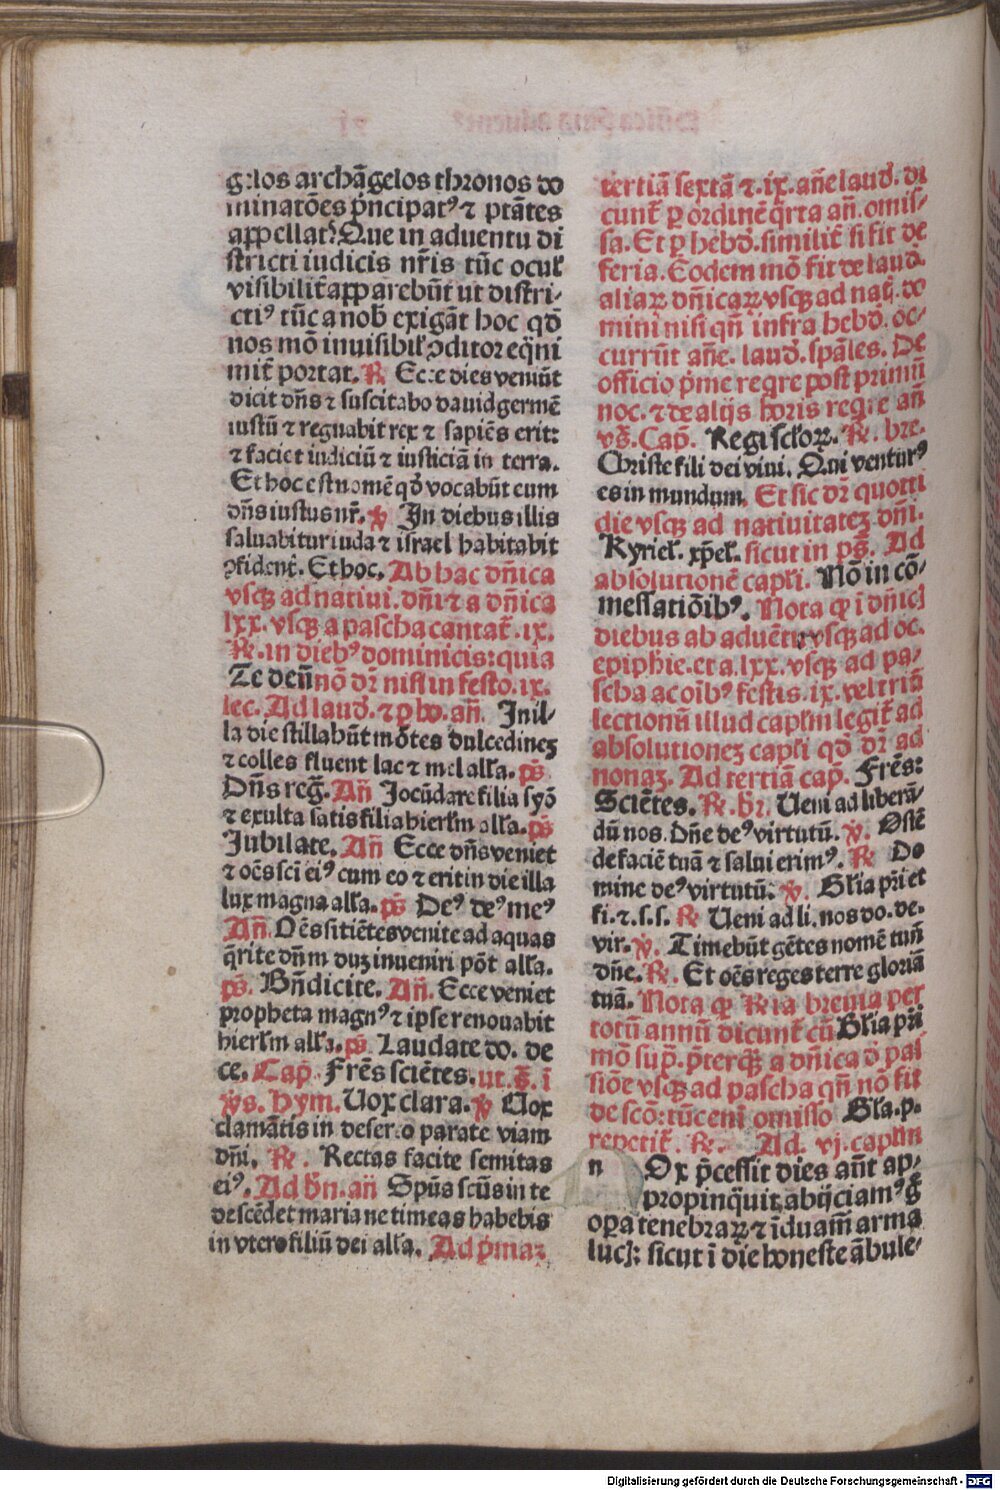 gelos archãgelos thronos do
minatões p̃ncipatꝰ ⁊ ptãtes
appellat᷑. Que in aduentu di
stricti iudicis nr̃is tũc oculꝭ
visibilit̃ apparebũt ut distri⸗
ctiꝰ tũc a nob̃ exigãt hoc qđ
nos mõ inuisibilꝭ ꝯditor eq̃ni
mit̃ portat. ℟ Ecce dies veniũt
dicit dñs ⁊ suscitabo dauid germẽ
iustũ ⁊ regnabit rex ⁊ sapiẽs erit:
⁊ faciet iudiciũ ⁊ iusticiã in terra.
Et hoc est nomẽ qđ vocabũt eum
dñs iustus nr̃. ℣ In diebus illis
saluabitur iuda ⁊ israel habitabit
ꝯfident̃. Et hoc. Ab hac dñica
vsqꝫ ad natiui. dñi ⁊ a dñica
lxx. vsqꝫ a pascha cantat̃ .ix.
℟. in diebꝰ dominicis: quia
Te deũ nõ dr̃ nisi in festo .ix.
lec. Ad laud̃. ⁊ ꝑ ho. añ. In il⸗
la die stillabũt mõtes dulcedineꝫ
⁊ colles fluent lac ⁊ mel alła. pš
Dñs reg̃. Añ Iocũdare filia syõ
⁊ exulta satis filia hierłm alła. pš
Iubilate. Añ Ecce dñs veniet
⁊ oẽs sci eiꝰ cum eo ⁊ erit in die illa
lux magna alła. pš Deꝰ deꝰ meꝰ
Añ. Oẽs sitiẽtes venite ad aquas
q̃rite dñm duꝫ inueniri põt alła.
pš. Bñdicite. Añ. Ecce veniet
propheta magnꝰ ⁊ ipse renouabit
hierłm alła. pš Laudate do. de
ce. Cap̃. Frẽs sciẽtes. ut. š. ĩ
℣s. hym. Uox clara. ℣ Uox
clamãtis in deserto parate viam
dñi. ℟. Rectas facite semitas
eiꝰ. Ad bñ. añ Spũs scũs in te
descẽdet maria ne timeas habebis
in vtero filiũ dei alła. Ad p̃maꝫ
tertiã sextã ⁊ .ix. añe laud̃. di
cunt̃ ꝑ ordinẽ q̃rta añ. omis⸗
sa. Et ꝑ hebd̃. similit̃ si fit de
feria. Eodem mõ fit de laud̃.
aliaꝝ dñicaꝝ vsqꝫ ad nat̃. do
mini nisi qñ infra hebd̃. oc⸗
currũt añe. laud̃. spãles. De
officio p̃me reqre post primũ
noc. ⁊ de alijs horis reqre añ
vš. Cap̃. Regi scłoꝝ. ℟. bre.
Christe fili dei viui. Qui venturꝰ
es in mundum. Et sic dr̃ quotti
die vsqꝫ ad natiuitateꝫ dñi.
Kyrieł. xp̃eł. sicut in pš. Ad
absolutionẽ capłi. Nõ in cõ⸗
messatiõibꝰ. Nota ꝙ ĩ dñicꝭ
diebus ab aduẽtu vsqꝫ ad oc.
epiphie. et a .lxx. vsqꝫ ad pa⸗
scha ac oibꝰ festis .ix. vel triũ
lectionũ illud capłm legit̃ ad
absolutioneꝫ capłi qđ dr̃ ad
nonaꝫ. Ad tertiã cap̃. Frẽs:
Sciẽtes. ℟. br̃. Ueni ad liberã⸗
dũ nos. Dñe deꝰ virtutũ. ℣. Oste
de faciẽ tuã ⁊ salui erimꝰ. ℟ Do
mine deꝰ virtutũ. ℣. Głia p̃ri et
fi. ⁊. s. s. ℟ Ueni ad li. nos do. de.
vir. ℣. Timebũt gẽtes nomẽ tuũ
dñe. ℟. Et oẽs reges terre gloriã
tuã. Nota ꝙ ℟ia breuia per
totũ annũ dicunt̃ cũ Głia p̃ri
mõ sup̃. p̃terqꝫ a dñica đ pas
siõe vsqꝫ ad pascha qñ nõ fit
de scõ: tũc eni omisso Głа. p.
repetit̃. ℟. Ad. vj. capłm
n Ox p̃cessit dies aũt ap⸗
propinq̃uit, abijciamꝰ g̃
oꝑa tenebraꝝ ⁊ ĩduam̃ arma
lucꝭ: sicut ĩ die honeste ãbule⸗
Digitalisierung gefördert durch die Deutsche Forschungsgemeinschaft - DFG